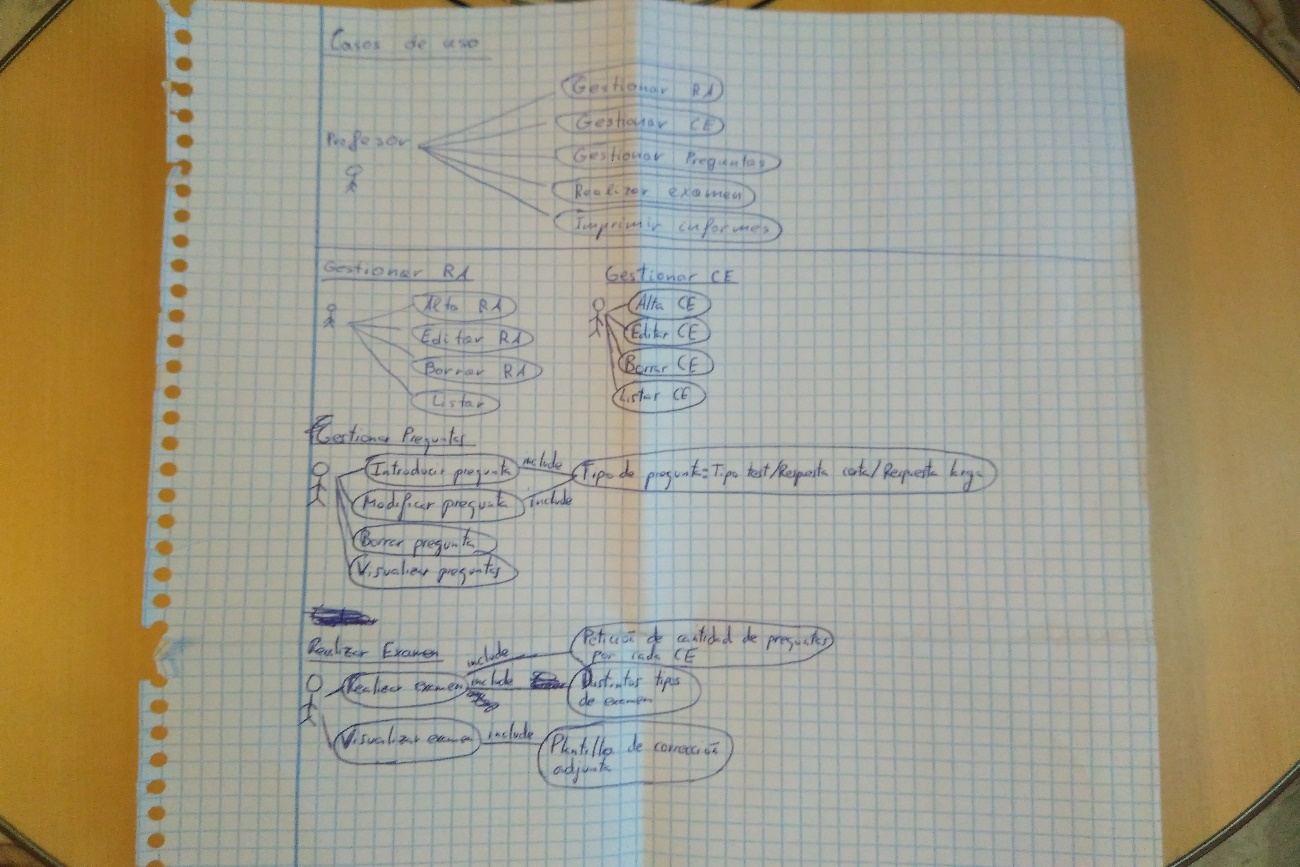 Casos de uso
Profesor
Gestionar RA
Gestionar CE
Gestionar Preguntas
Realizar examen
Imprimir informes
Gestionar RA
Alta RA
Editar RA
Borrar RA
Listar
Gestionar CE
Alta CE
Editar CE
Borrar CE
Listar CE
Gestionar Preguntas
Introducir pregunta
include
Tipo de pregunta=Tipo test/Respuesta corta/Respuesta larga
Modificar pregunta
include
Borrar pregunta
Visualizar preguntas
Realizar Examen
Realizar examen
include
Petición de cantidad de preguntas
por cada CE
include
Distintos tipos
de examen
Visualizar examen
include
Plantilla de corrección
adjunta